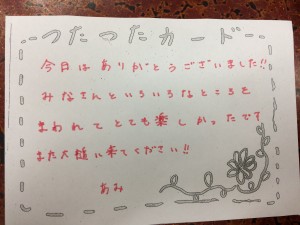 つたつたカード
今日はありがとうございました!!
みなさんといろいろなところを
まわれてとても楽しかったです
また大槌に来てください!!
あみ